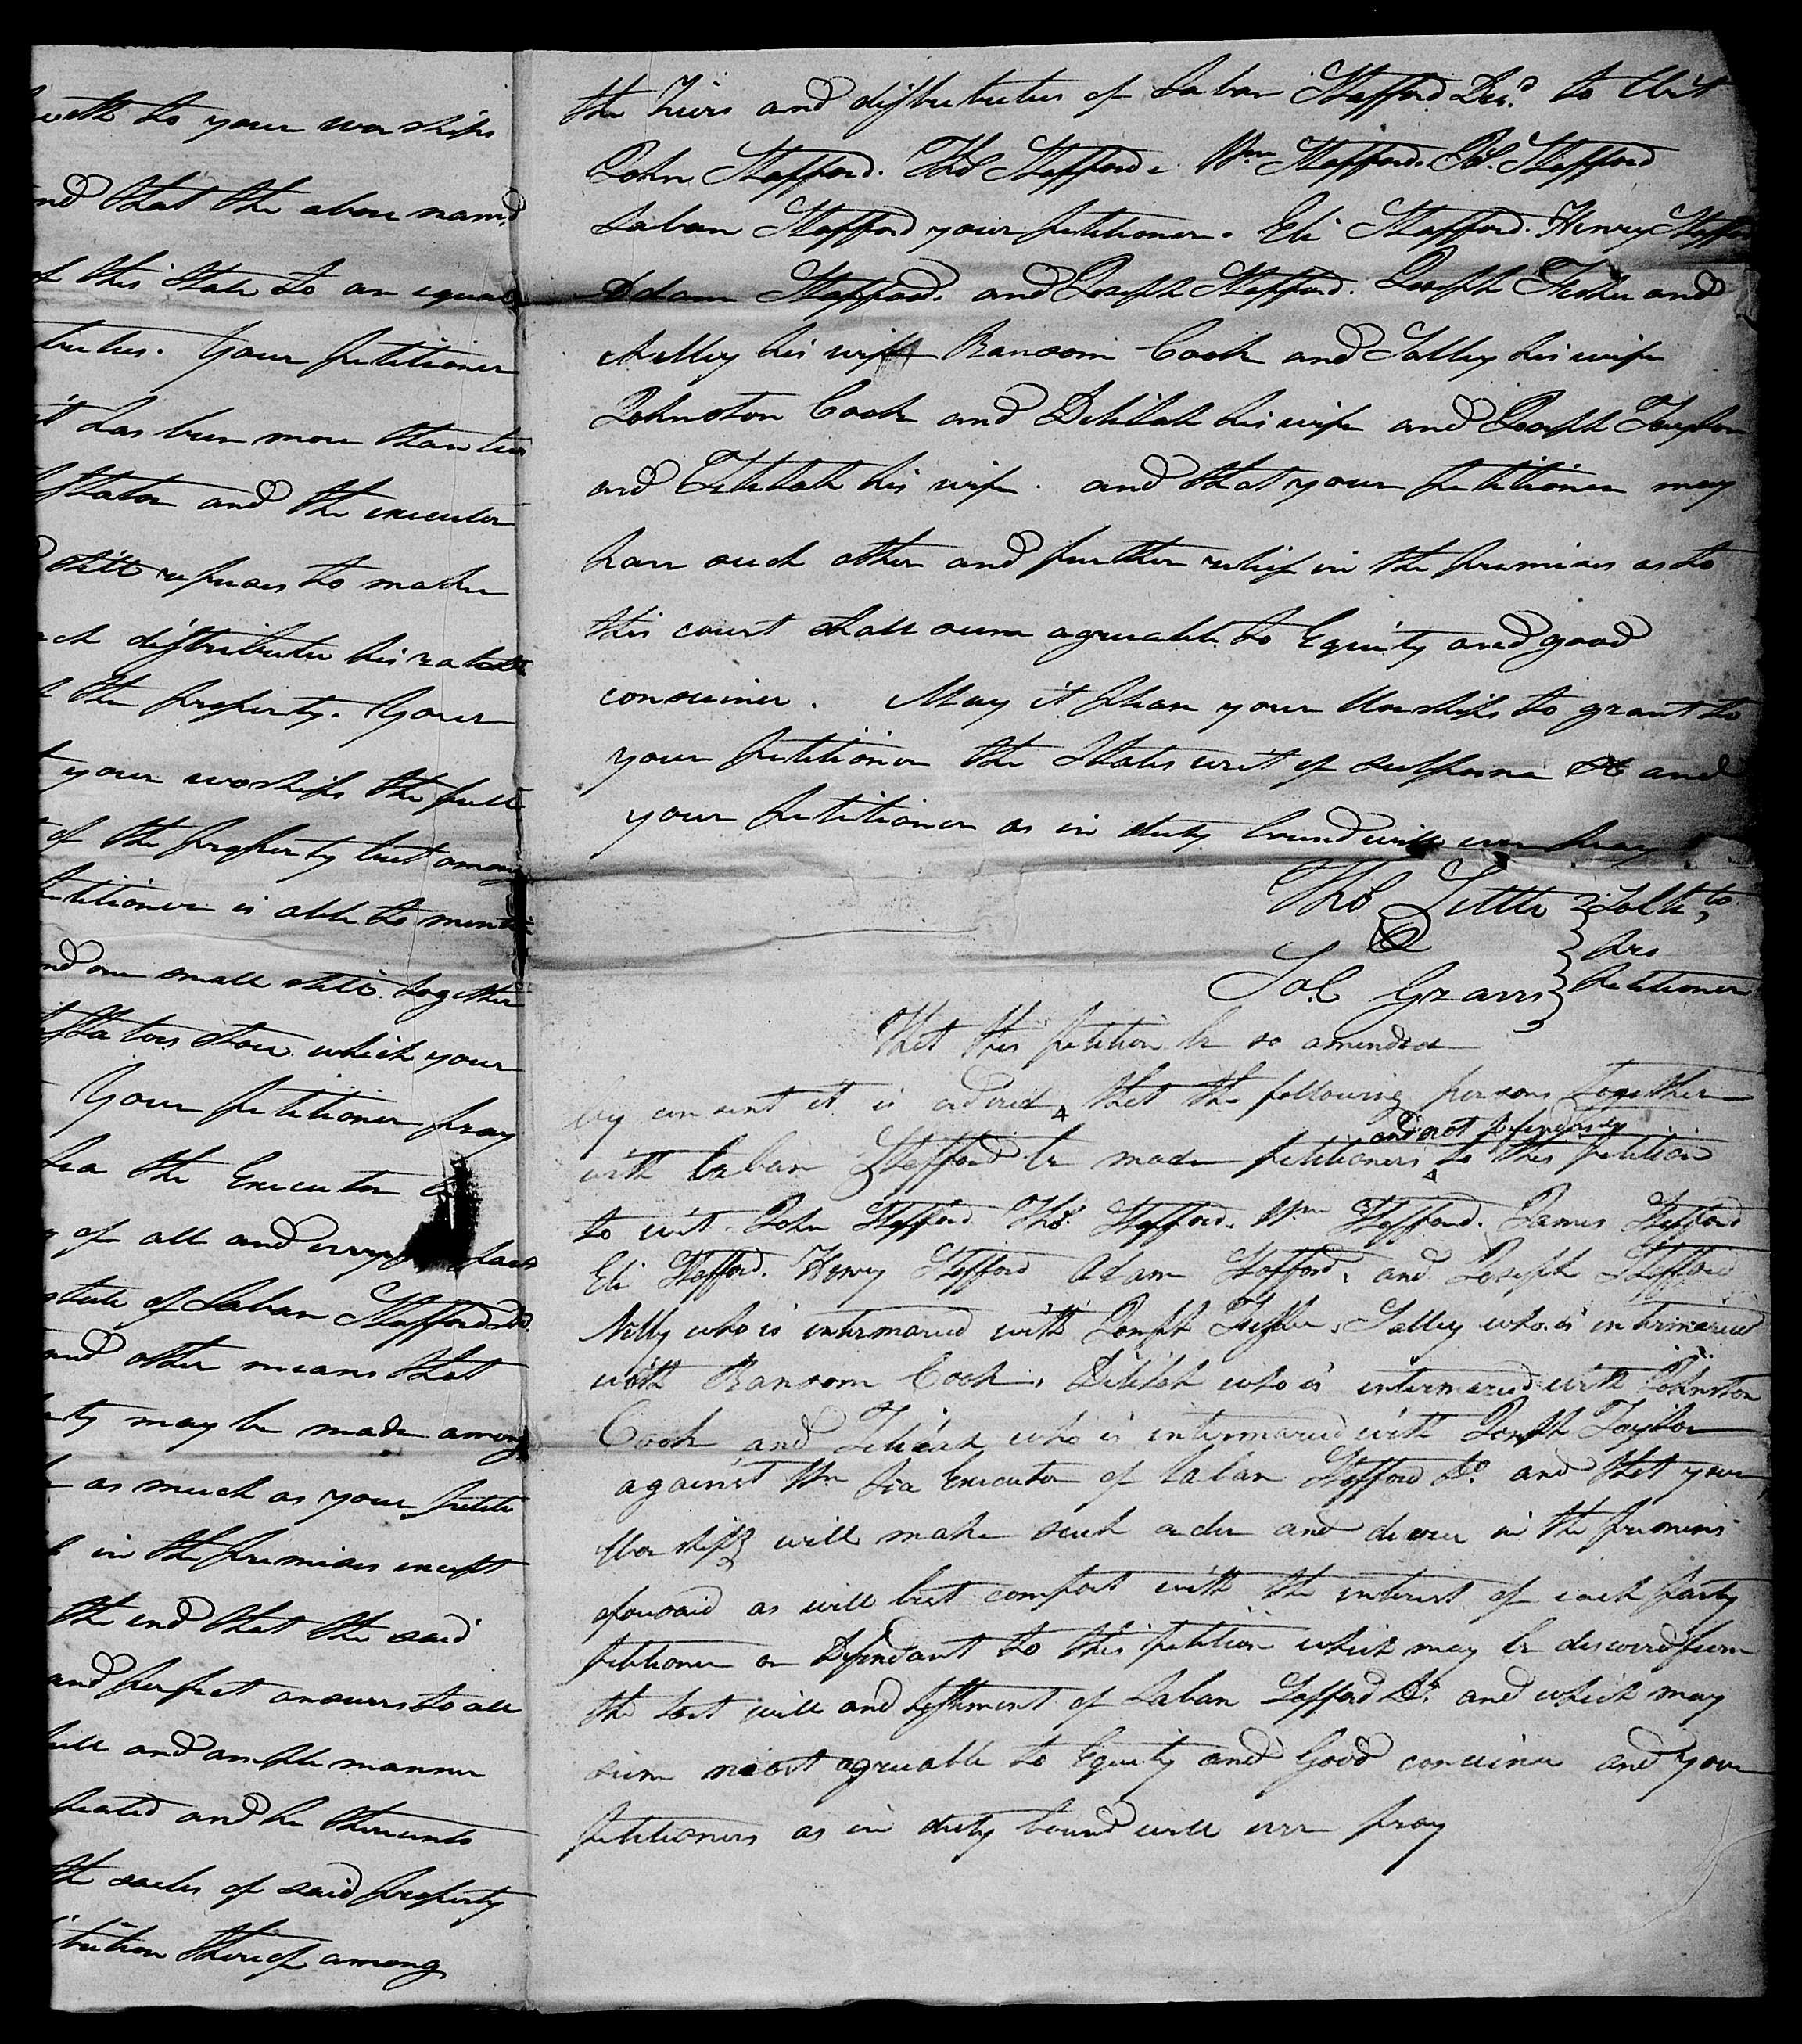 with to your worships
nd that the above named
f this State to an equal
butes. Your petitioner
it has been more than two
stator and the executor
still refuses to make
ch distributee his ratable
f the property. Your
t your worships the full
of the property but among
etitioner is able to menti
nd one small still together
stators stove which your
Your petitioner pray
Lea the Executor
of all and every
state of Laban Stafford Dd.
and other means that
ty may be made among
as much as your petiti
in the premises except
the end that the said
and perfect answers to all
full and ample manner
peated and he thereunto
the sales of said property
ibution thereof among
the heirs and distributees of Laban Stafford Decd. to Wit
John Stafford. Tho Stafford. Wm Stafford. Jas. Stafford
Laban Stafford your petitioner. Eli Stafford. Henry Stafford
Adam Stafford. and Joseph Stafford. Joseph Fisher and
Nelley his wife Ransom Cook and Salley his wife
Johnston Cook and Delilah his wife and Joseph Taylor
and Telitah his wife. and that your petitioner may
have such other and further relief in the premises as to
this court shall seem agreeable to Equity and good
consience. May it pleas your Worships to grant to
your petitioner the States writ of subpoena &c and
your petitioner as in duty bound will ever pray
Tho Little } Solts.
&
Sol Graves } pro Petitioner
That this petition be so amended
by consent it is ordered ^ that the following persons together
and not defendants
with Laban Stafford be made petitioners ^ to this petition
to wit. John Stafford Tho. Stafford. Wm Stafford. James Stafford
Eli Stafford. Henry Stafford Adam Stafford. and Joseph Stafford
Nelly who is intermaried with Joseph Fisher, Salley who is intermaried
with Ransom Cook, Delilah who is intermaried with Johnston
Cook and Telitah who is intermaried with Joseph Taylor
against Wm Lea Executor of Laban Stafford Dd. and that your
Worships will make such order and decree in the premises
aforesaid as will best comport with the interest of each party
petitioner or Defendant to this petition which may be discovered from
the last will and testement of Laban Stafford Dd. and which may
seem most agreeable to Equity and Good concience and your
petitioners as in duty bound will ever pray